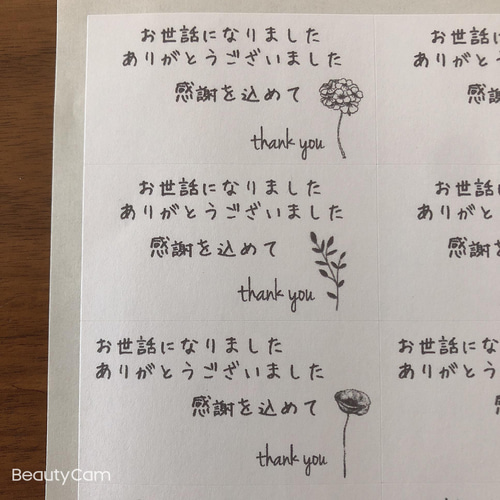 お世話になりました
ありがとうございました
感謝を込めて
thank you
お世話に
ありがと
感謝
thank you
お世話になりました
ありがとうございました
感謝を込めて
thank you
お世話
ありがと
感謝
お世話になりました
ありがとうございました
感謝を込めて
thank you
お世話にな
ありがとう
BeautyCam